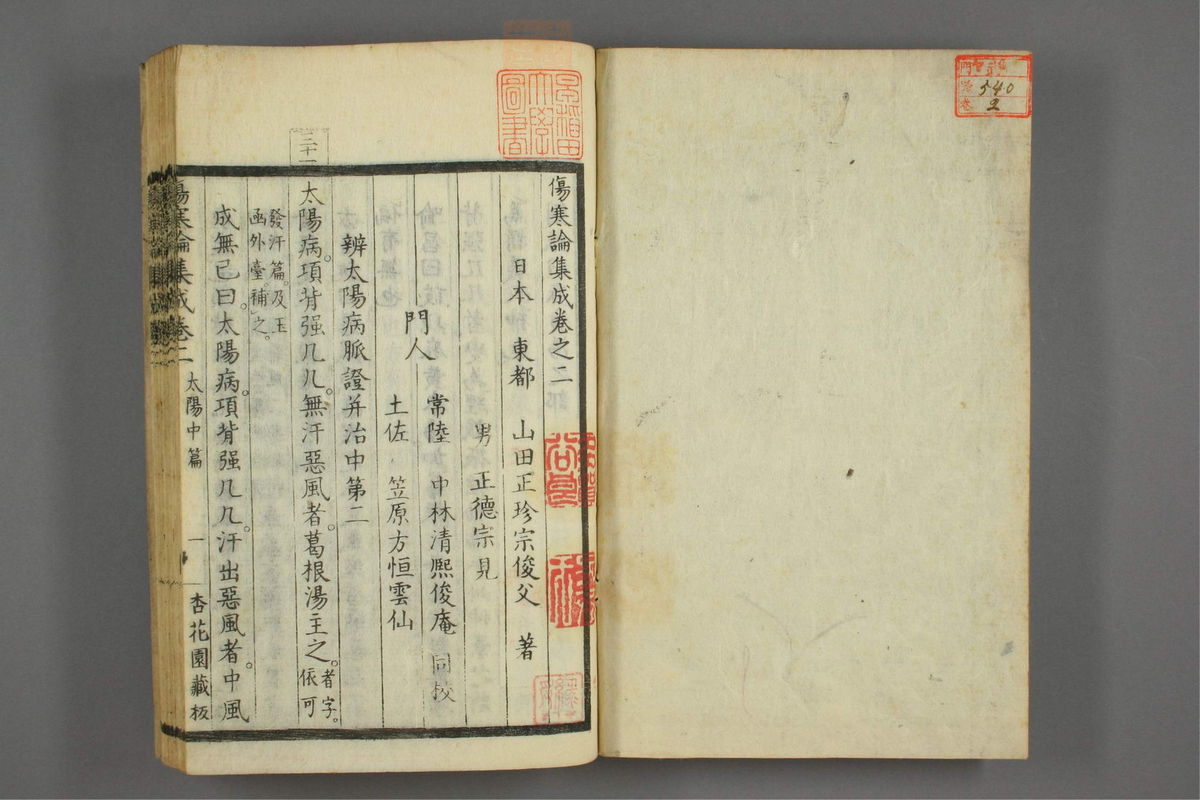 三十一
傷寒論集成卷之二
日本 東都 山田正珍宗俊父 著
男 正德宗見
門人 常陸 中林清熙俊庵 同校
土佐 笠原方恒雲仙
辨太陽病脈證并治中第二
太陽病。項背强几几。無汗惡風者。葛根湯主之。者字。依可
發汗篇。及玉
函外臺。補之。
成無已曰。太陽病。項背强几几。汗出惡風者。中風
傷寒論集成卷二 太陽中篇 一 杏花園藏板
早稻田
大學
圖書
門
號 540
卷 2